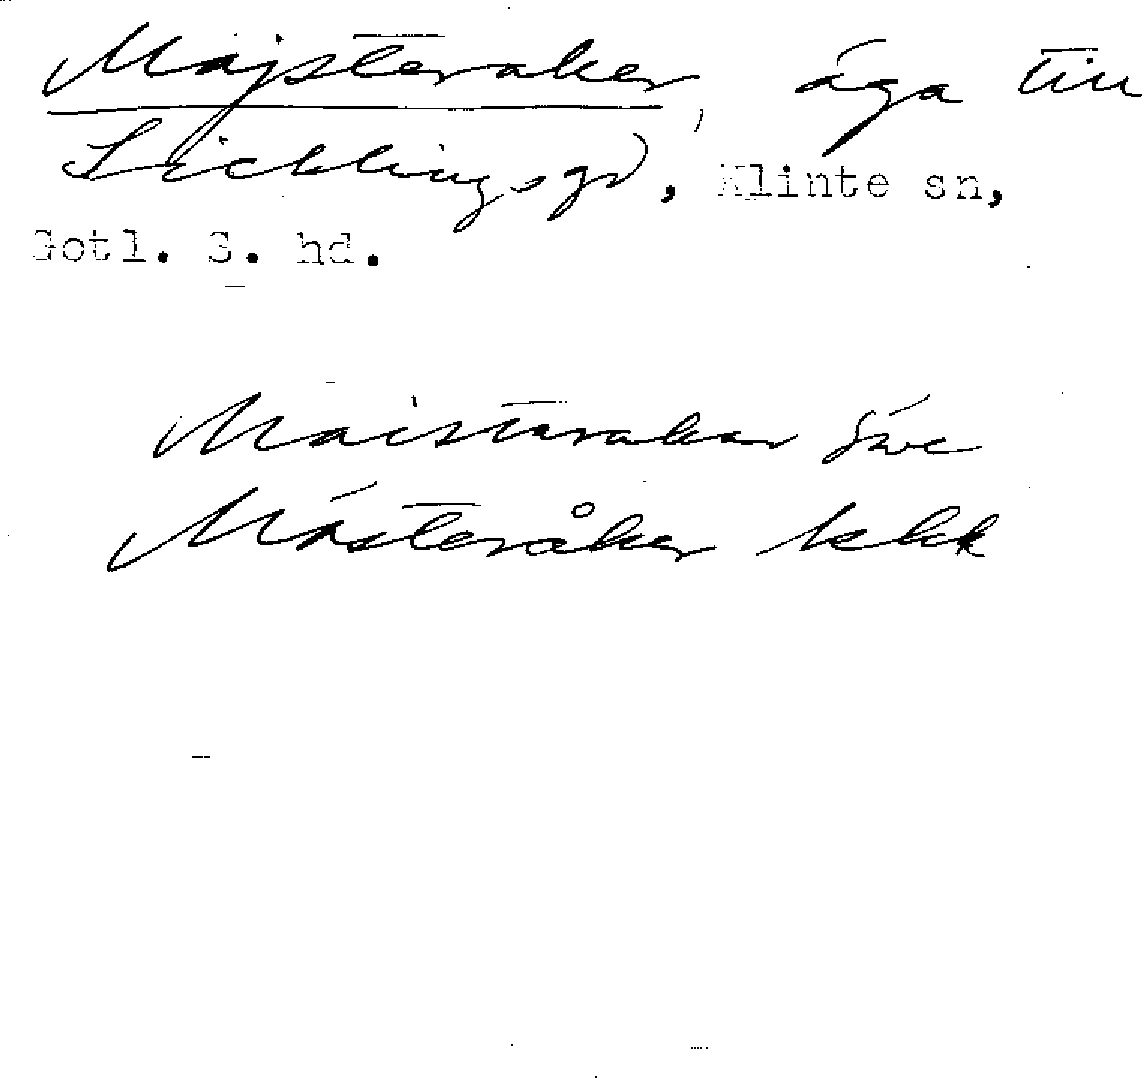 Majsteraker, äga till
Licklingsgd, Klinte sn,
Gotl. S. hd.
Maistarakar Sve
Mästeråker kkk